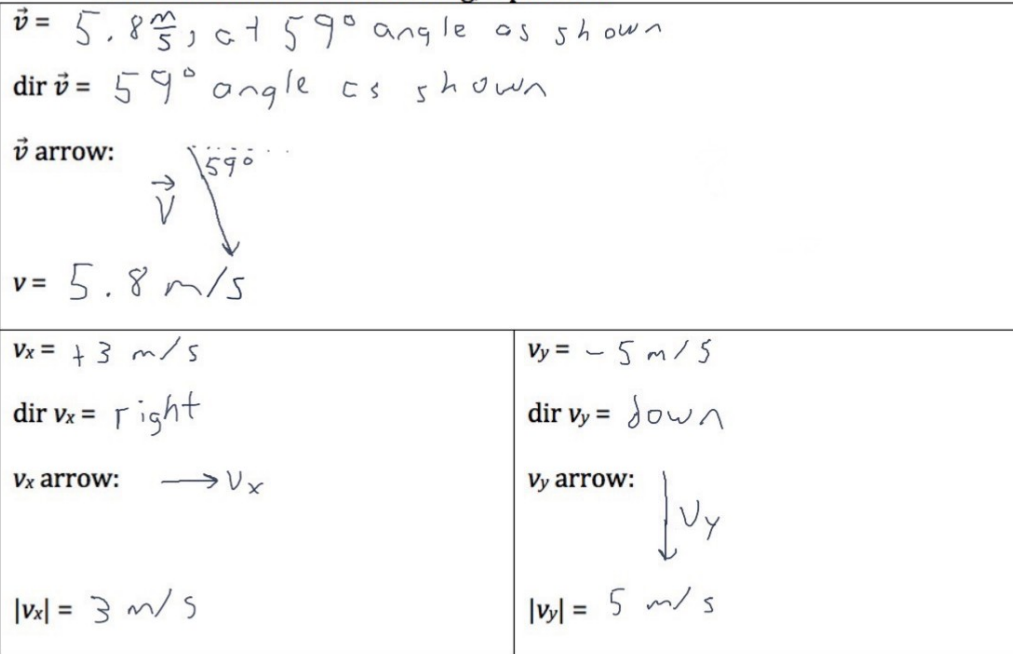 v⃗ = 5.8 m/s, at 59° angle as shown
dir v⃗ = 59° angle as shown
v⃗ arrow:
59°
V⃗
v = 5.8 m/s
vx = +3 m/s
dir vx = right
vx arrow: → Vx
|vx| = 3 m/s
vy = -5 m/s
dir vy = down
vy arrow:
Vy
|vy| = 5 m/s